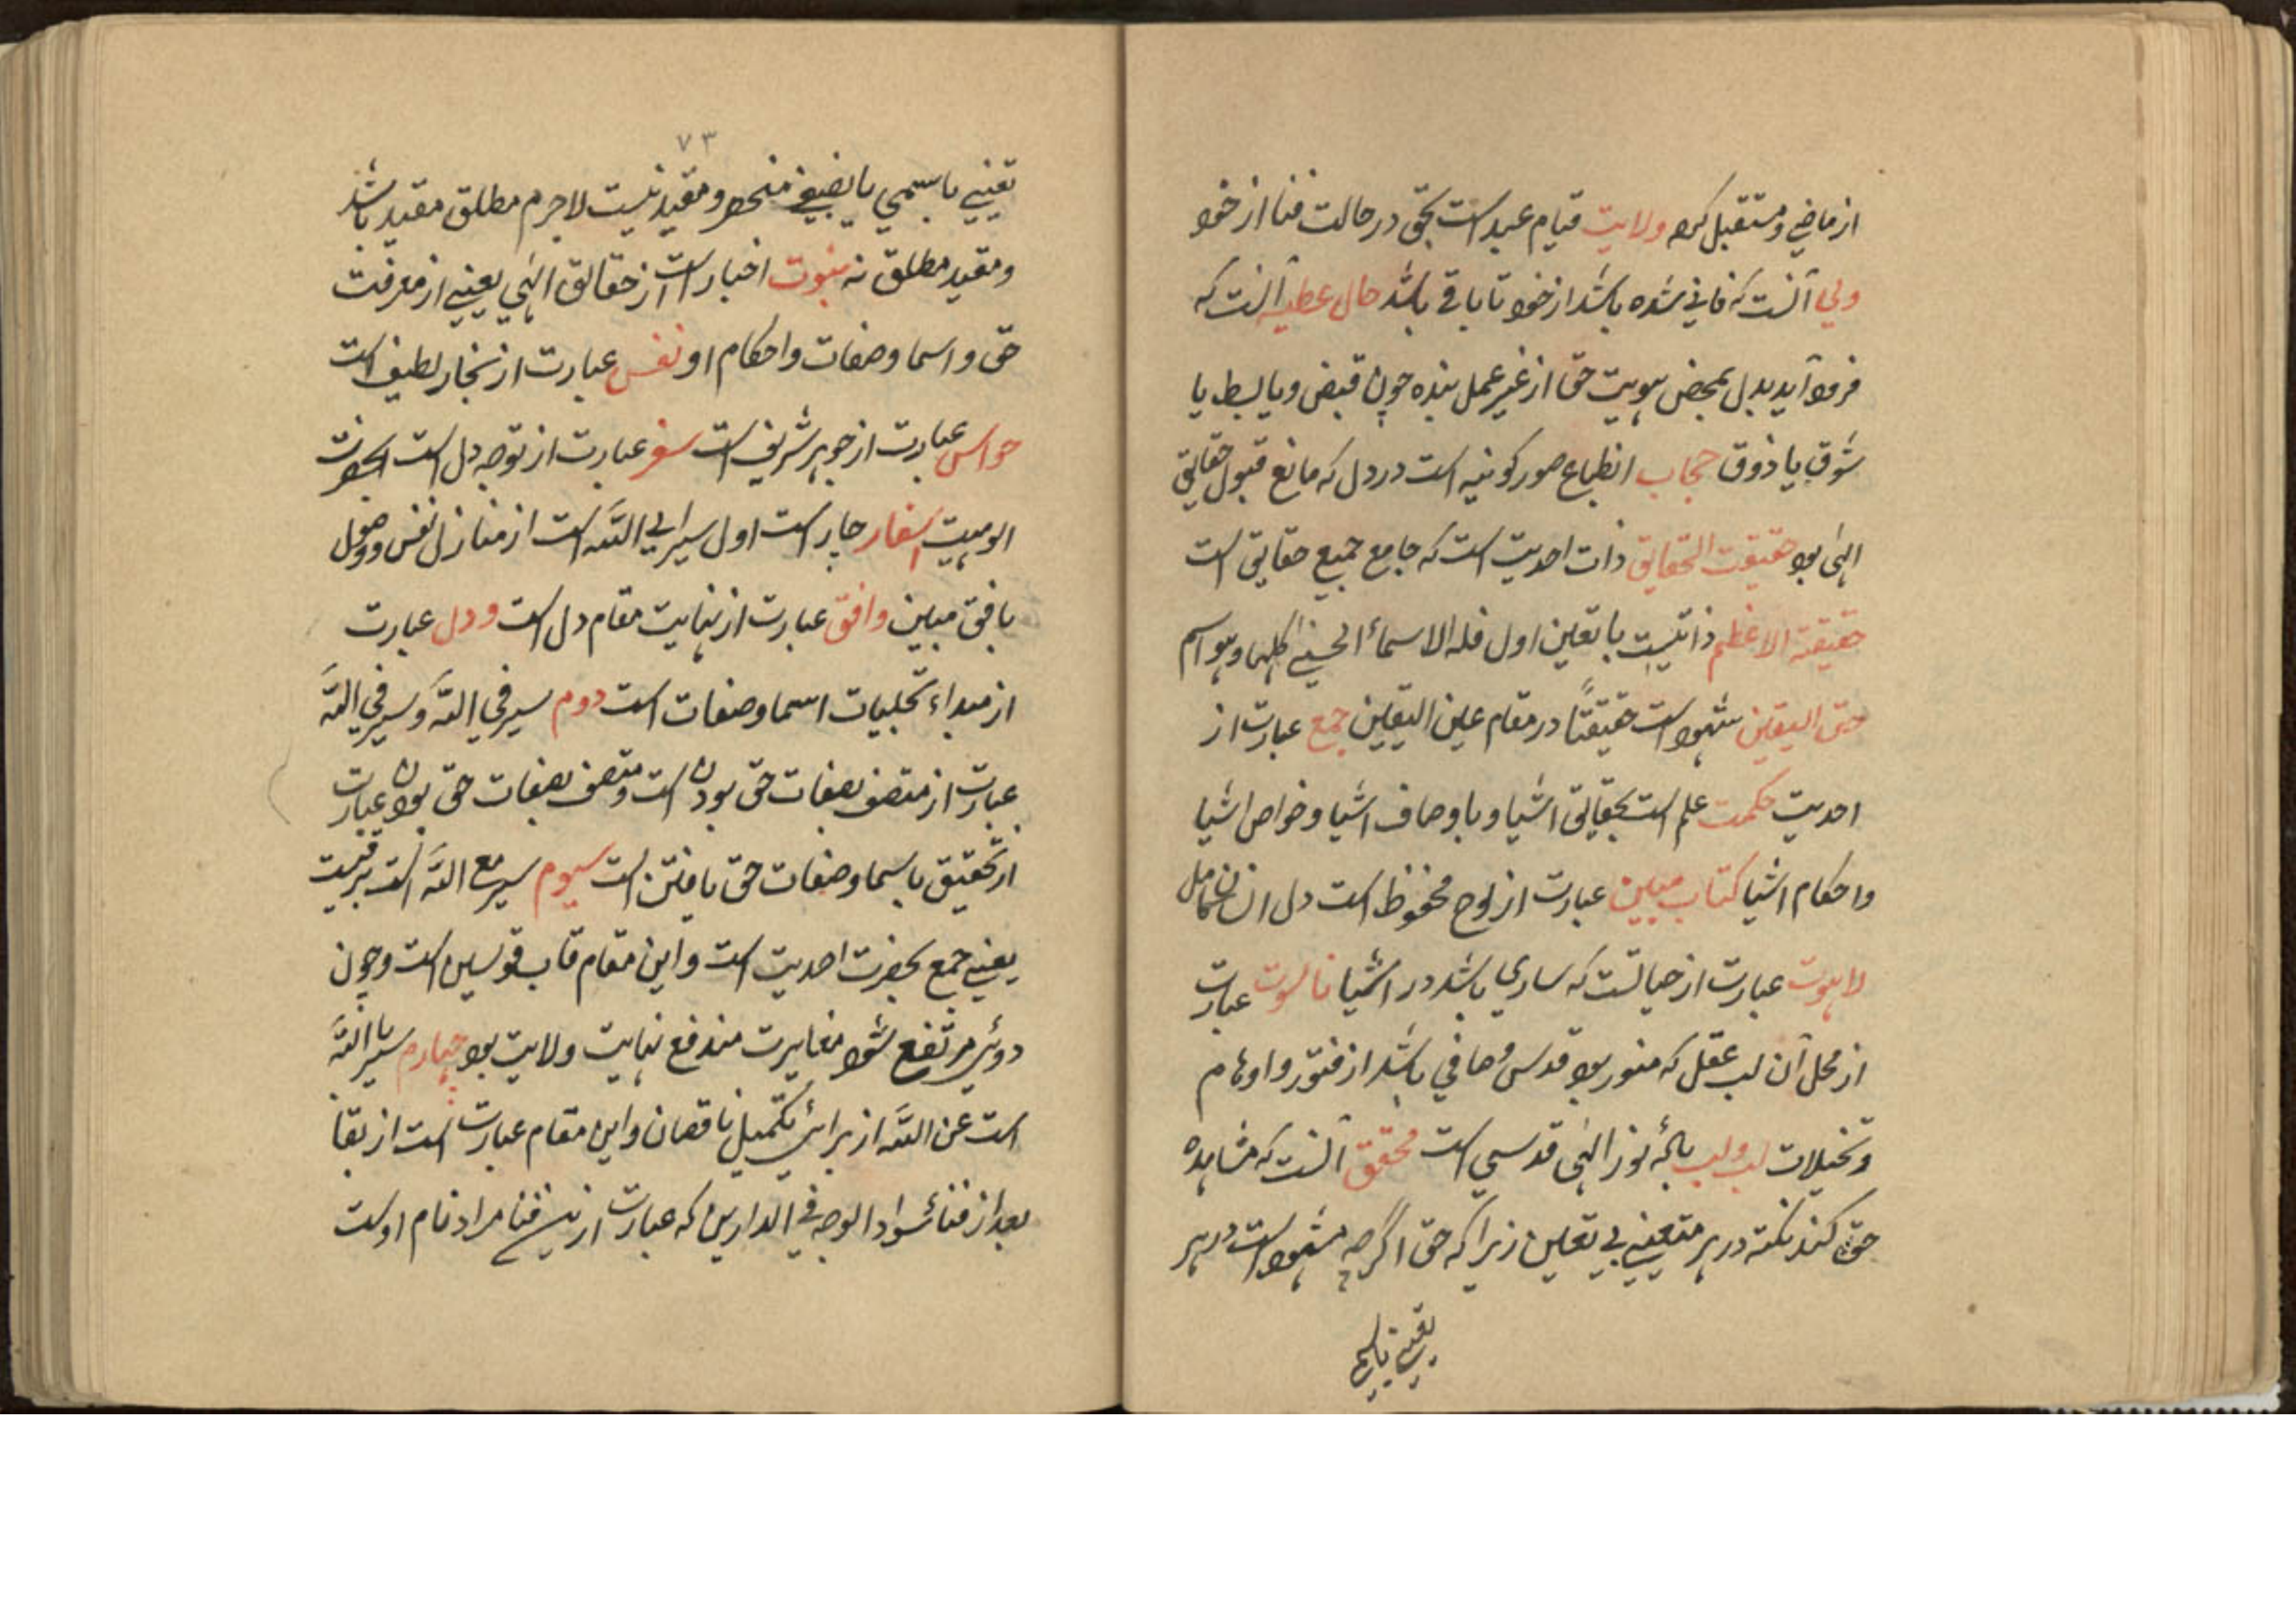 از ماضی و مستقبل کرد ولایت قیام عبد است بحق در حالت فنا از خود
ولی آنست که فانی شده باشد از خود تا باقی باشد حال عطیه آنست که
فرود آید بدل بمحض هویت حق از غیر عمل بنده چون قبض و یا بسط یا
شوق یا ذوق حجاب انطباع صور کونیه است در دل که مانع قبول حقایق
الهی بود حقیقت الحقایق ذات احدیت است که جامع جمیع حقایق است
حقیقة الاعظم ذاتیست با تعین اول فله الاسماء الحسنی کلها و هو اسم
حق الیقین شهود است حقیقتاً در مقام عین الیقین جمع عبارت از
احدیت حکمت علم است بحقایق اشیا و باوصاف اشیا و خواص اشیا
و احکام اشیا کتاب مبین عبارت از لوح محفوظ است دل انسان کامل
لاهوت عبارت از حیاتست که ساری باشد در اشیا ناسوت عبارت
از محل آن لب عقل که منور بود قدس و صافی باشد از فتور و اوهام
و تخیلات لب و لب نور الهی قدسی است محقق آنست که مشاهده
حق کند نکته در هر متعینی بی تعین زیرا که حق اگرچه مشهود است در هر
تعینی باسمی
۷۳
تعینی باسمی یا منحصر و مقید نیست لاجرم مطلق مقید باشد
و مقید مطلق نه نبوت اخبار است از حقایق الهی یعنی از معرفت
حق و اسما و صفات و احکام او نفس عبارت از بخار لطیف است
حواس عبارت از جوهر شریف است سفر عبارت از توجه دل است بحضرت
الوهیت اسفار چار است اول سیر الی اللّه است از منازل نفس و وصول
بافق مبین و افق عبارت از نهایت مقام دل است و دل عبارت
از مبداء تجلیات اسما و صفات است دوم سیر فی اللّه و سیر فی اللّه
عبارت از متصف بصفات حق بودن است و متصف بصفات حق بودن عبارت
از تحقیق باسما و صفات حق یافتن است سیوم سیر مع اللّه است
یعنی جمع بحضرت احدیت است و این مقام قاب قوسین است و چون
دوئی مرتفع شود مغایرت مندفع نهایت ولایت بود چهارم سیر باللّه
است عن اللّه از برائی تکمیل ناقصان و این مقام عبارت است از بقا
بعد از فنا سواد الوجه فی الدارین که عبارت از نیست فنا مراد نام اوست